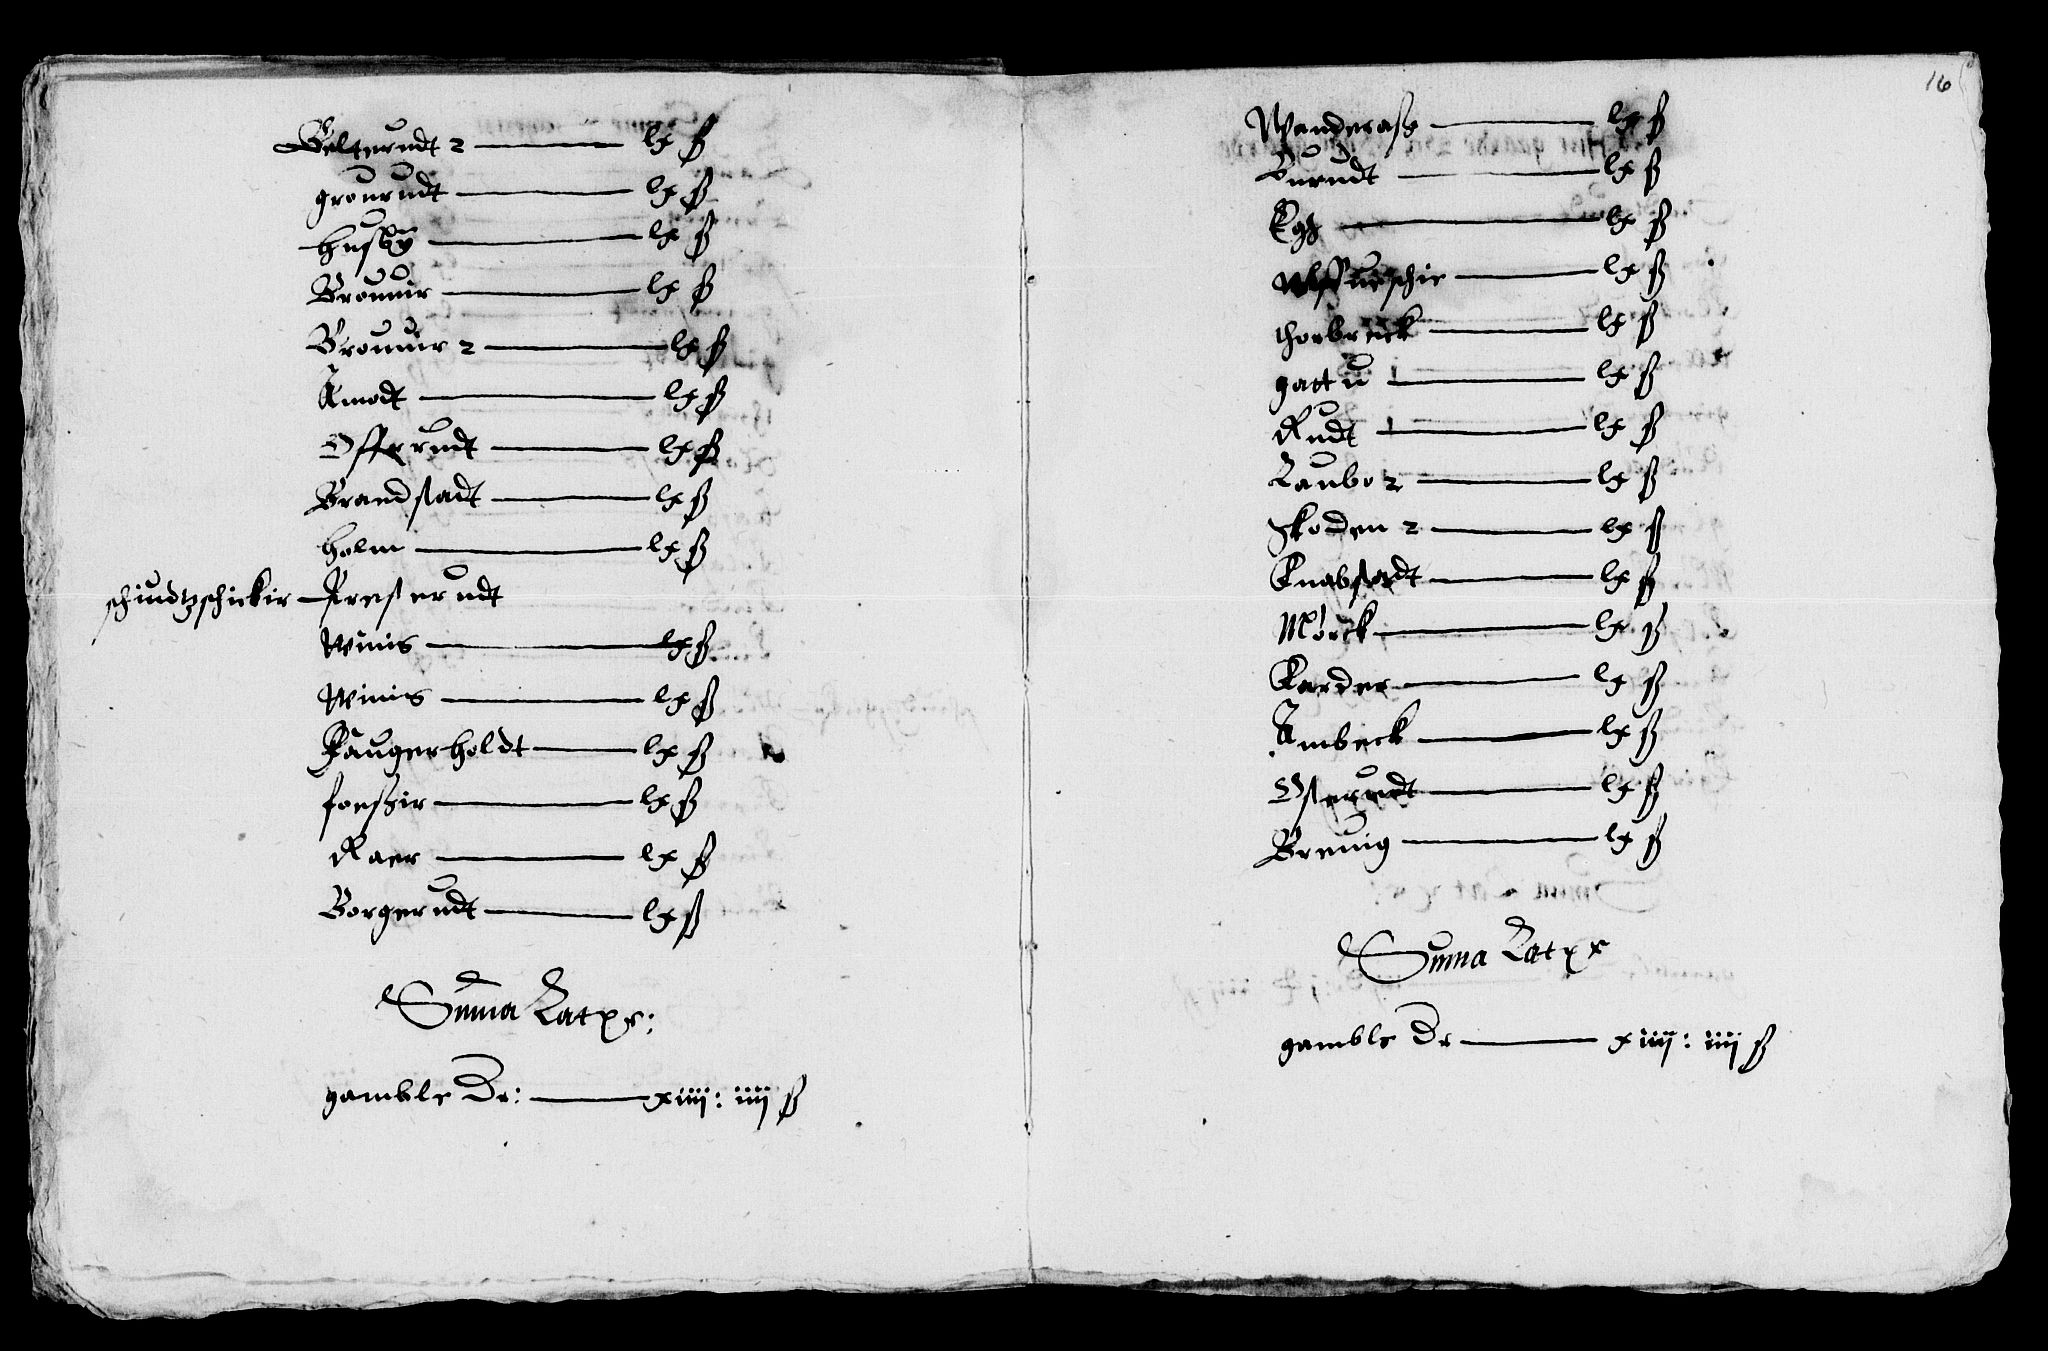 Belterudt 2 — lx ß
grourudt — lx ß
husby — lx ß
Brouuir — lx ß
Brouuir 2 — lx ß
Amodt — lx ß
Offerudt — lx ß
Brandstadt — lx ß
holm — lx ß
schiudtzschickir — Presterudt
Winis — lx ß
Winis — lx ß
Paugerholdt — lx ß
foessir — lx ß
Raer — lx ß
Borgerudt — lx ß
Suma Latxs:
gamble Dr: — xiiij: iiij ß
16
Wanderass — lx ß
Burudt — lx ß
Egh — lx ß
— lx ß
thorbreck — lx ß
gattu 1 — lx ß
Rudt 1 — lx ß
Laubo 2 — lx ß
Skoden 2 — lx ß
Knabstadt — lx ß
Mörck — lx ß
Karder — lx ß
Ambeck — lx ß
Osterudt — lx ß
Breuig — lx ß
Suma Latxs
gamble Dr — xiiij: iiij ß